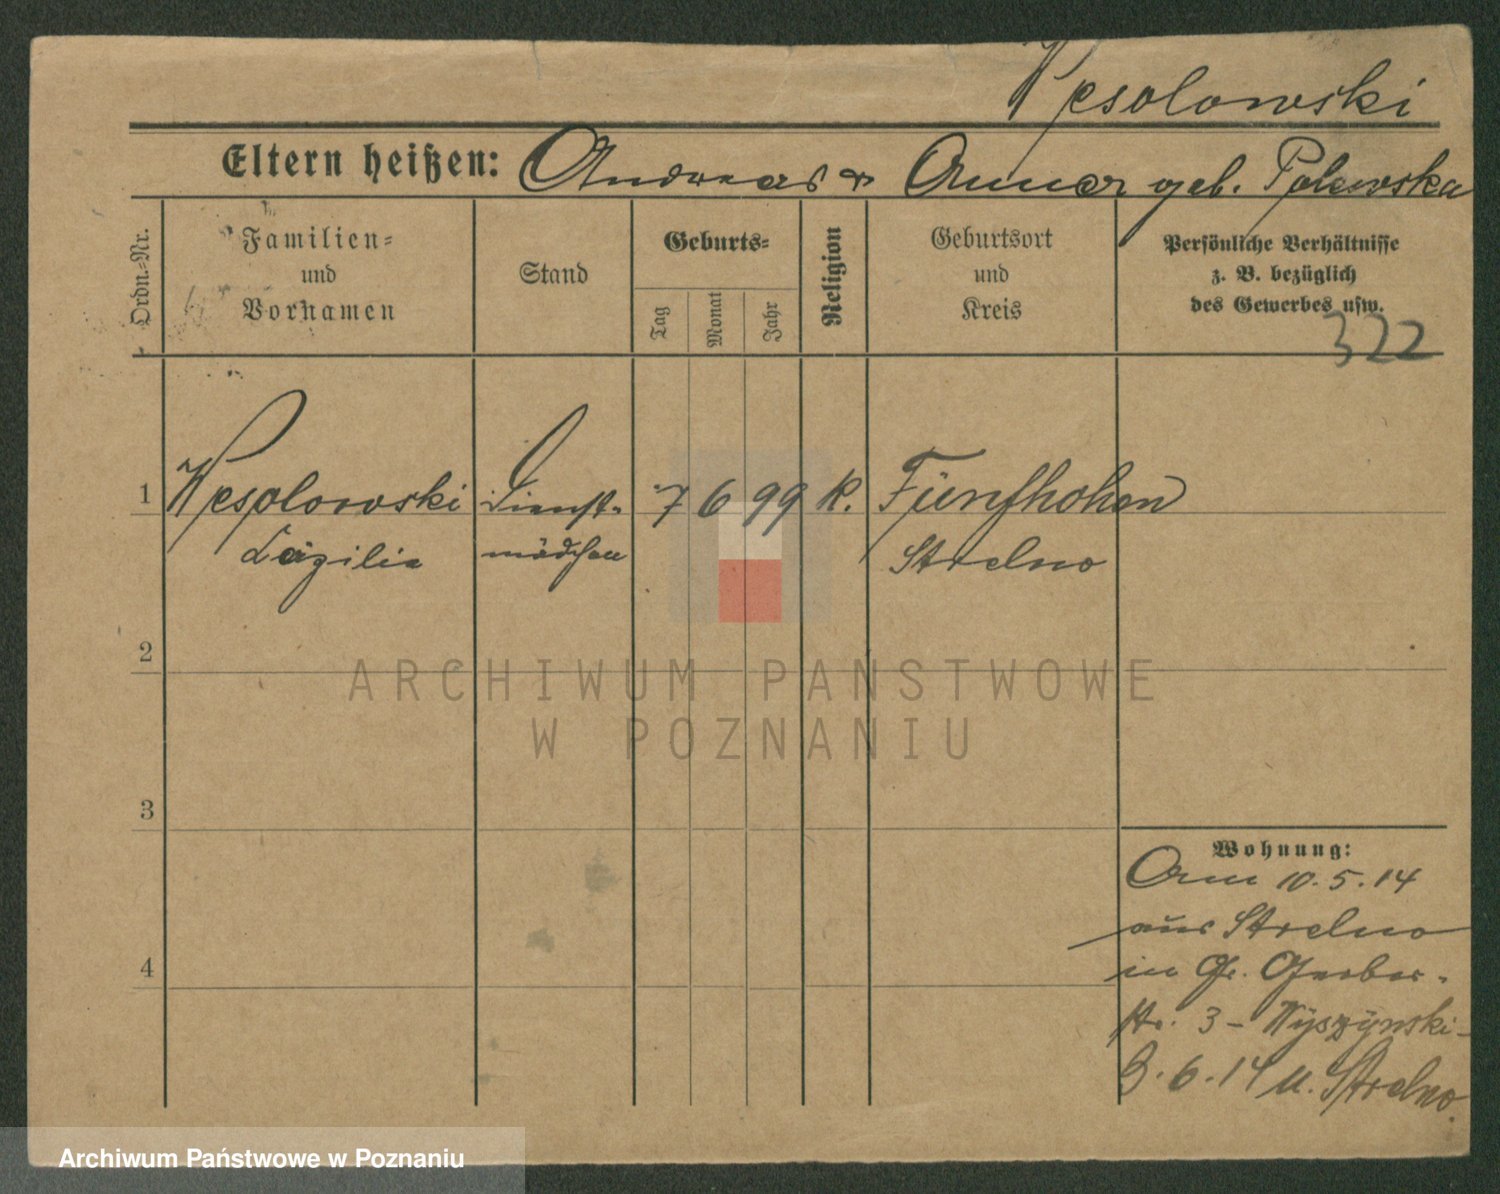 Wesolowski
Eltern heißen: Andreas & Anna geb. Polewska
Ordn.-Nr.
Familien-
und
Vornamen
Stand
Geburts-
Tag
Monat
Jahr
Religion
Geburtsort
und
Kreis
Persönliche Verhältnisse
z. B. bezüglich
des Gewerbes usw.
322
1 Wesolowski Dienst- 7 6 99 k. Fünfhohen
Cäzilie mädchen Strelno
2
3
4
Wohnung:
Am 10.5.14
aus Strelno
in Gr. Gerber-
str. 3 - Wyszynski-
3.6.14 n. Strelno.
ARCHIWUM PAŃSTWOWE
W POZNANIU
Archiwum Państwowe w Poznaniu